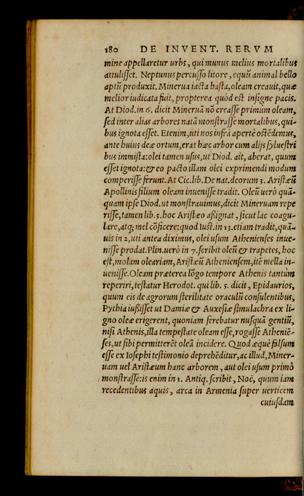 180 DE INVENT. RERVM
mine appellaretur urbs, qui munus melius mortalibus
attulisset. Neptunus percusso litore, equũ animal bello
aptũ produxit. Minerua iacta hasta, oleam creauit, quæ
melior iudicata fuit, propterea quòd est insigne pacis.
At Diod. in 6. dicit Mineruã nõ creasse primùm oleam,
sed inter alias arbores natã monstrasse mortalibus, qui-
bus ignota esset. Etenim, uti nos infrà apertè ostẽdemus,
ante huius deæ ortum, erat hæc arbor cum alijs syluestri
bus immista: olei tamen usus, ut Diod. ait, aberat, quum
esset ignota: & eo pacto illam olei exprimendi modum
comperisse ferunt. At Cic. lib. De nat. deorum 3. Aristæũ
Apollinis filium oleam inuenisse tradit. Oleũ uerò quã-
quam ipse Diod. ut monstrauimus, dicit Mineruam repe
risse, tamen lib. 5. hoc Aristeo aßignat, sicut lac coagu-
lare, atq; mel cõficere: quod Iust. in 13. etiam tradit, quã-
uis in 2, uti antea diximus, olei usum Athenienses inue-
nisse prodat. Plin. uerò in 7. scribit oleũ & trapetes, hoc
est, molam oleariam, Aristæũ Atheniensem, itẽ mella in-
uenisse. Oleam præterea lõgo tempore Athenis tantùm
reperiri, testatur Herodot. qui lib. 5. dicit, Epidaurios,
quum eis de agrorum sterilitate oraculũ consulentibus,
Pythia iußisset ut Damiæ & Auxesiæ simulachra ex li-
gno oleæ erigerent, quoniam ferebatur nusquã gentiũ,
nisi Athenis, illa tempestate oleam esse, rogasse Atheniẽ-
ses, ut sibi permitterẽt oleã incidere. Quod æquè falsum
esse ex Iosephi testimonio deprehẽditur, ac illud, Miner-
uam uel Aristæum hanc arborem, aut olei usum primò
monstrasse: is enim in 1. Antiq. scribit, Noë, quum iam
recedentibus aquis, arca in Armenia super uerticem
cuiusdam